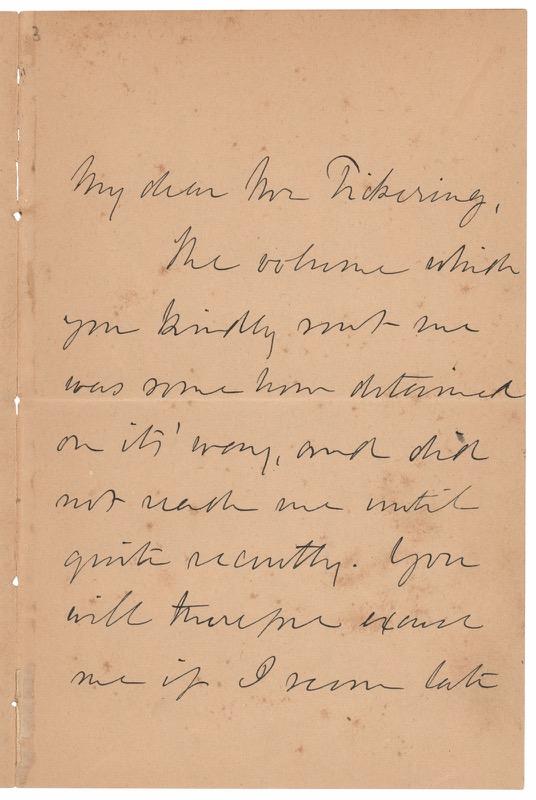 3
My dear Mr Pickering,
The volume which
you kindly sent me
was some how detained
on its' way, and did
not reach me until
quite recently. You
will therefore excuse
me if I seem late